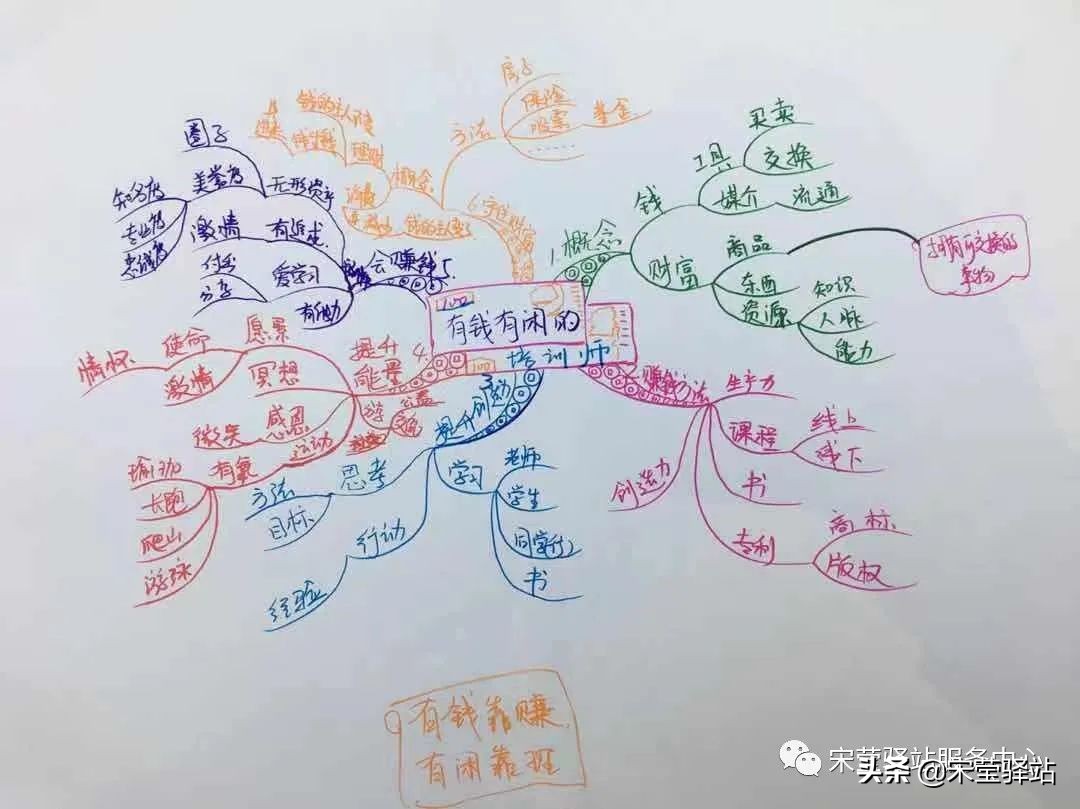 有钱有闲的
培训师
100
100
1.概念
钱
工具
买卖
交换
媒介
流通
财富
商品
拥有可交换的
事物
东西
资源
知识
人脉
能力
赚钱方法
生产力
课程
线上
线下
书
专利
商标
版权
创造力
提升创造力
学习
老师
学生
书
思考
方法
目标
行动
经验
4.
提升
能量
愿景
使命
情怀
激情
冥想
感恩
微笑
运动
有氧
瑜珈
长跑
爬山
游泳
会赚钱
5.
无形资产
圈子
美誉度
知名度
专业度
忠诚度
有追求
激情
爱学习
付出
分享
有能力
6.守住财富
方法
房子
保险
股票
基金
……
概念
理财
有钱靠赚
有闲靠
宋莹驿站服务中心
头条@宋莹驿站